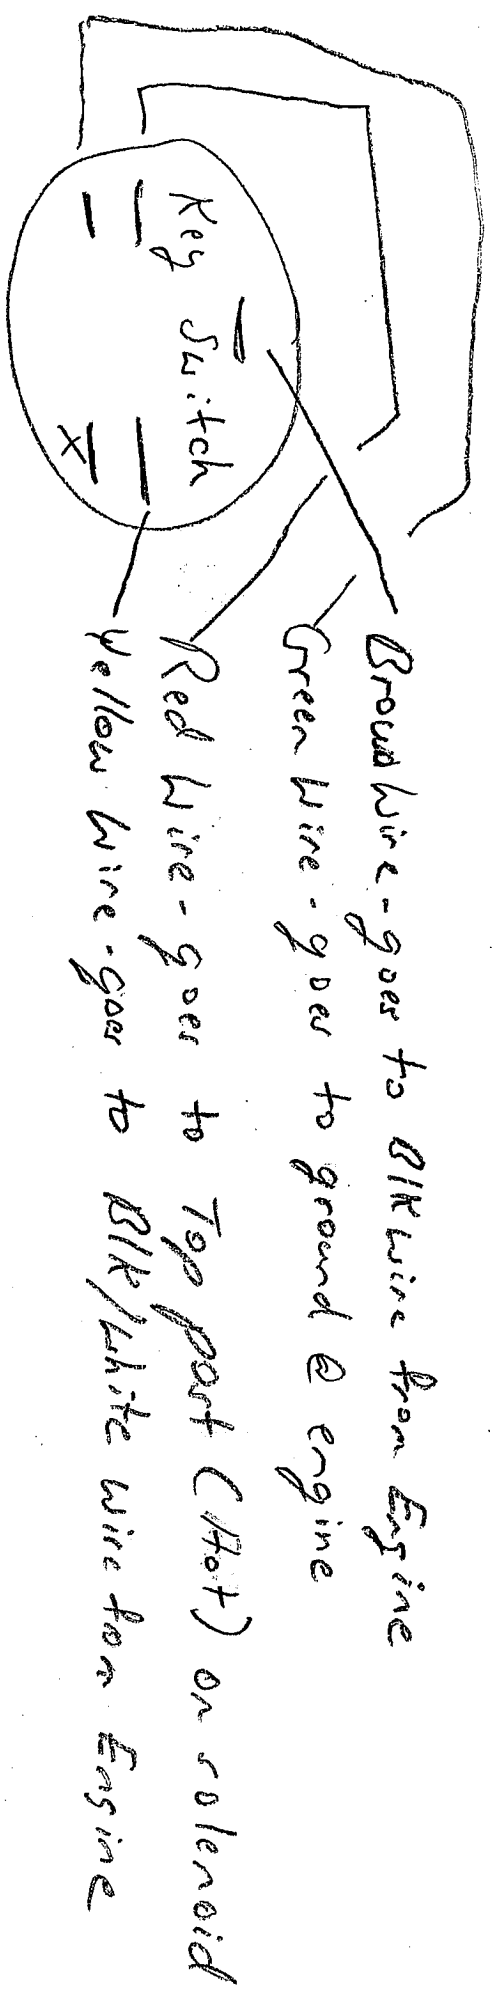 Key Switch
X
Brown Wire - goes to Blk wire from Engine
Green Wire - goes to ground @ engine
Red Wire - goes to Top post (Hot) on solenoid
Yellow Wire - goes to Blk/White wire from Engine